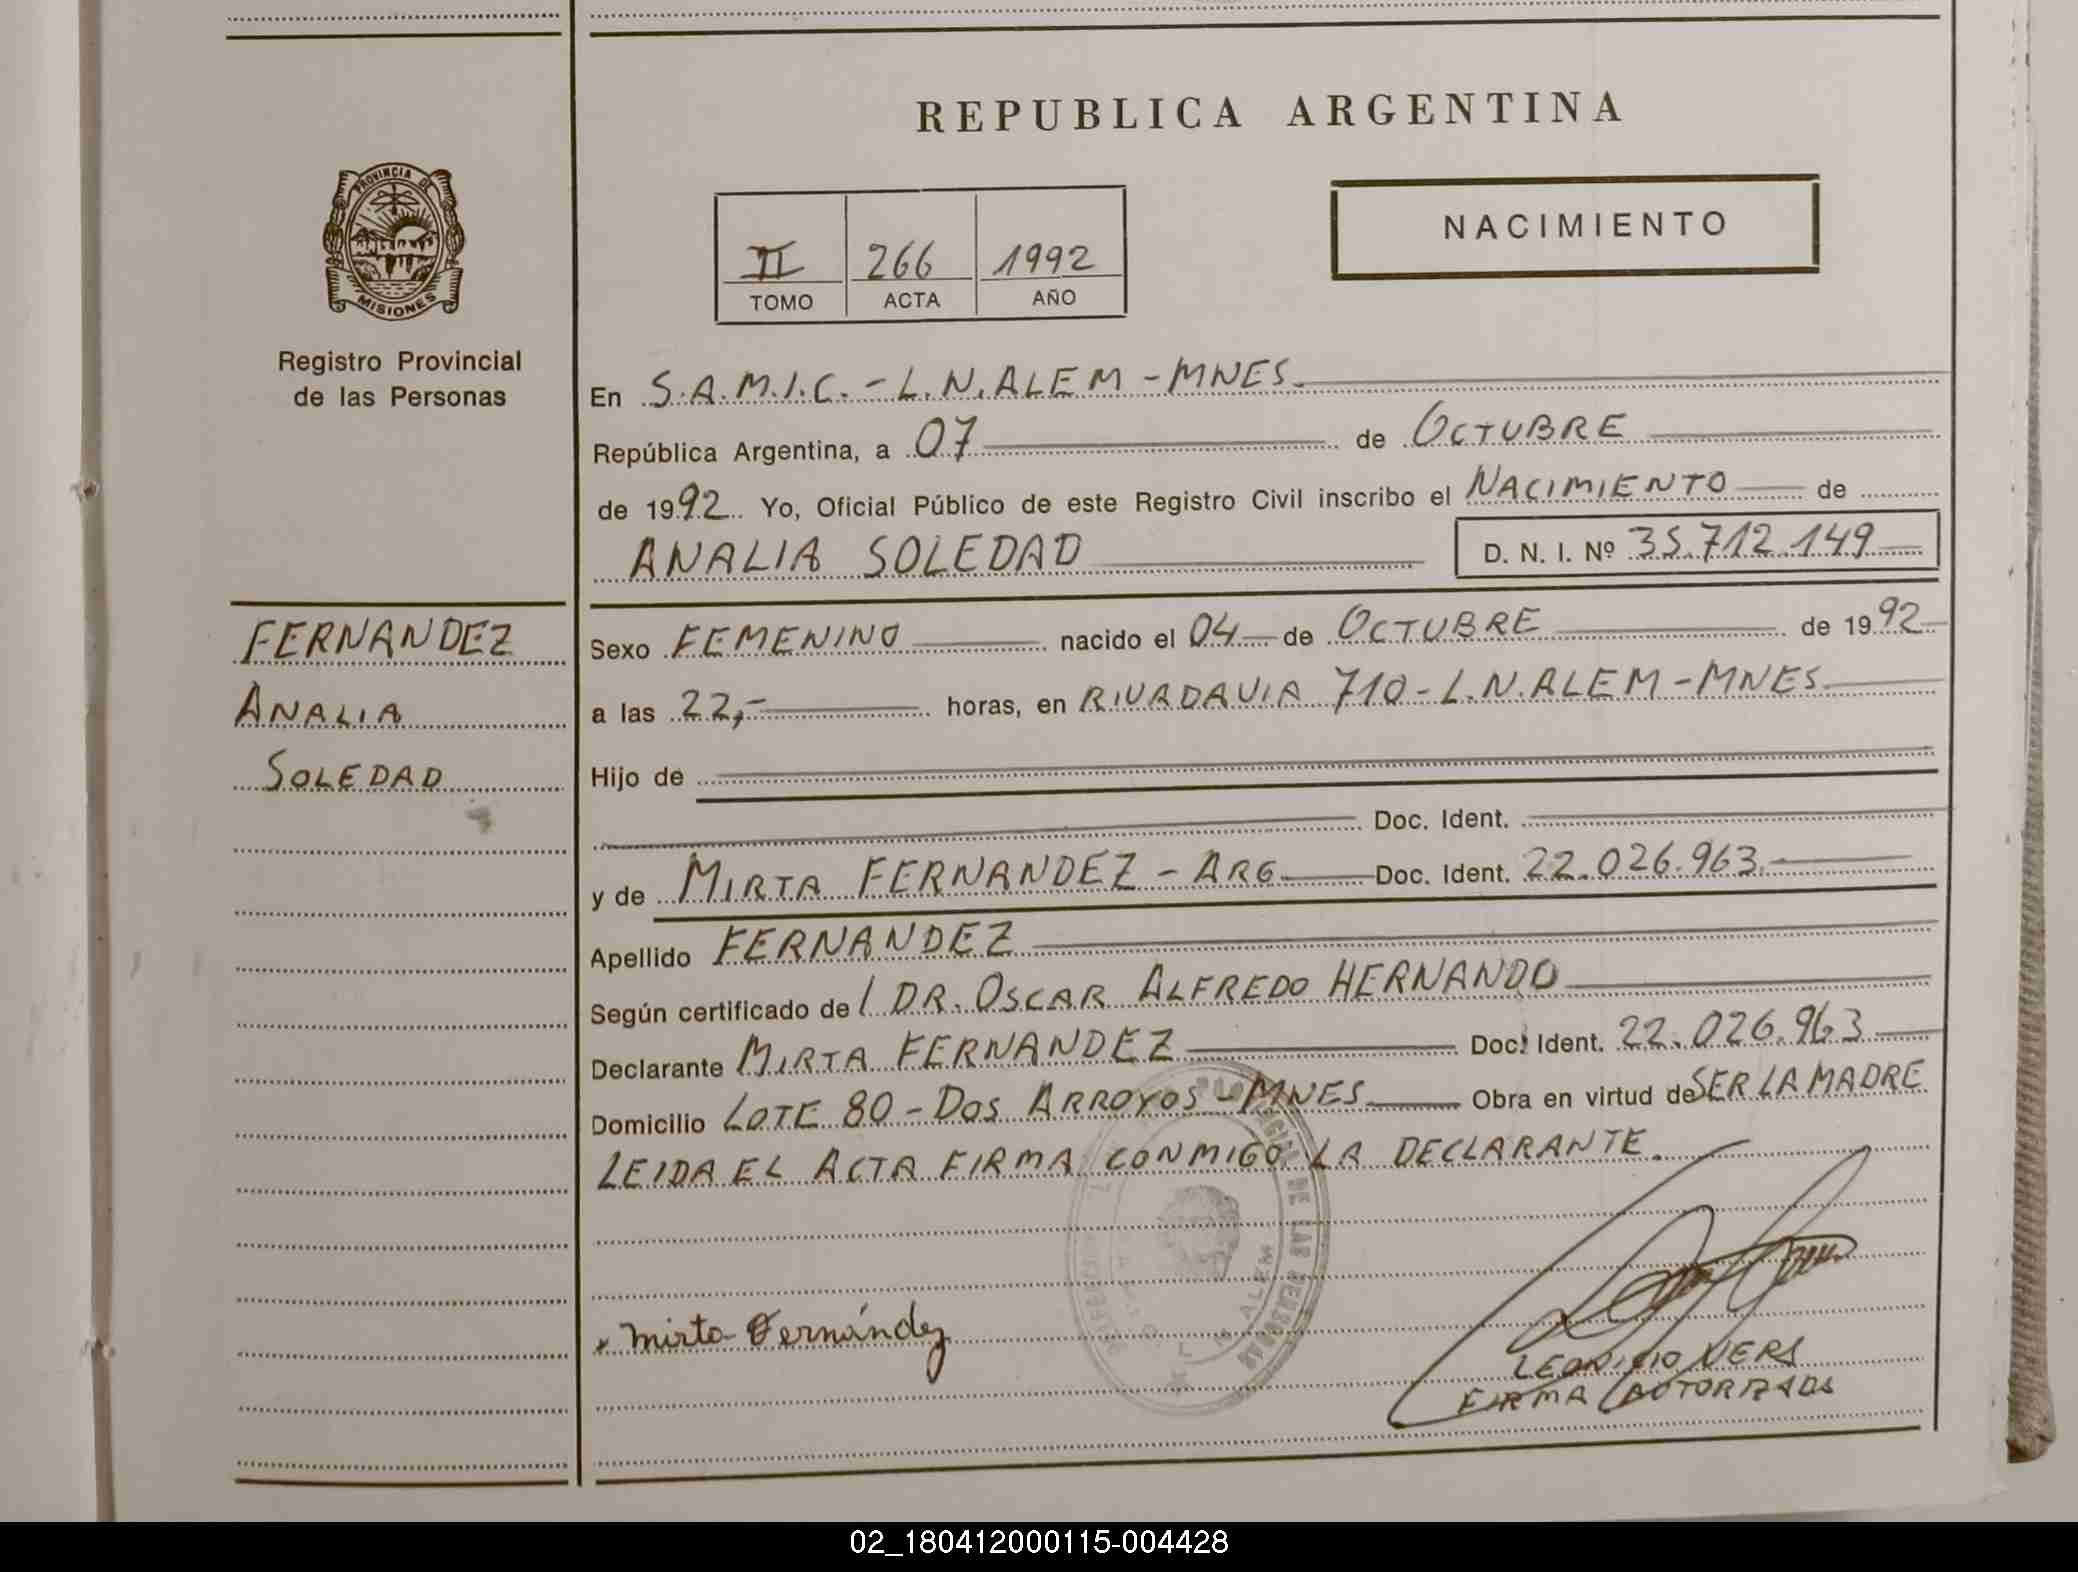 REPUBLICA ARGENTINA
PROVINCIA DE
MISIONES
Registro Provincial
de las Personas
NACIMIENTO
II 266 1992
TOMO ACTA AÑO
En S.A.M.I.C.-L.N.ALEM-MNES.
República Argentina, a 07 de OCTUBRE
de 1992 Yo, Oficial Público de este Registro Civil inscribo el NACIMIENTO de
ANALIA SOLEDAD D. N. I. Nº 35.712.149
FERNANDEZ
ANALIA
SOLEDAD
Sexo FEMENINO nacido el 04 de OCTUBRE de 1992
a las 22,- horas, en RIVADAVIA 710-L.N.ALEM-MNES
Hijo de
Doc. Ident.
y de MIRTA FERNANDEZ - ARG Doc. Ident. 22.026.963
Apellido FERNANDEZ
Según certificado de / DR. OSCAR ALFREDO HERNANDO
Declarante MIRTA FERNANDEZ Doc. Ident. 22.026.963
Domicilio LOTE 80 - DOS ARROYOS - MNES Obra en virtud de SER LA MADRE
LEIDA EL ACTA FIRMA CONMIGO LA DECLARANTE.
DE LAS PERSONAS
L. N. ALEM
Mirta Fernández
FIRMA AUTORIZADA
02_180412000115-004428